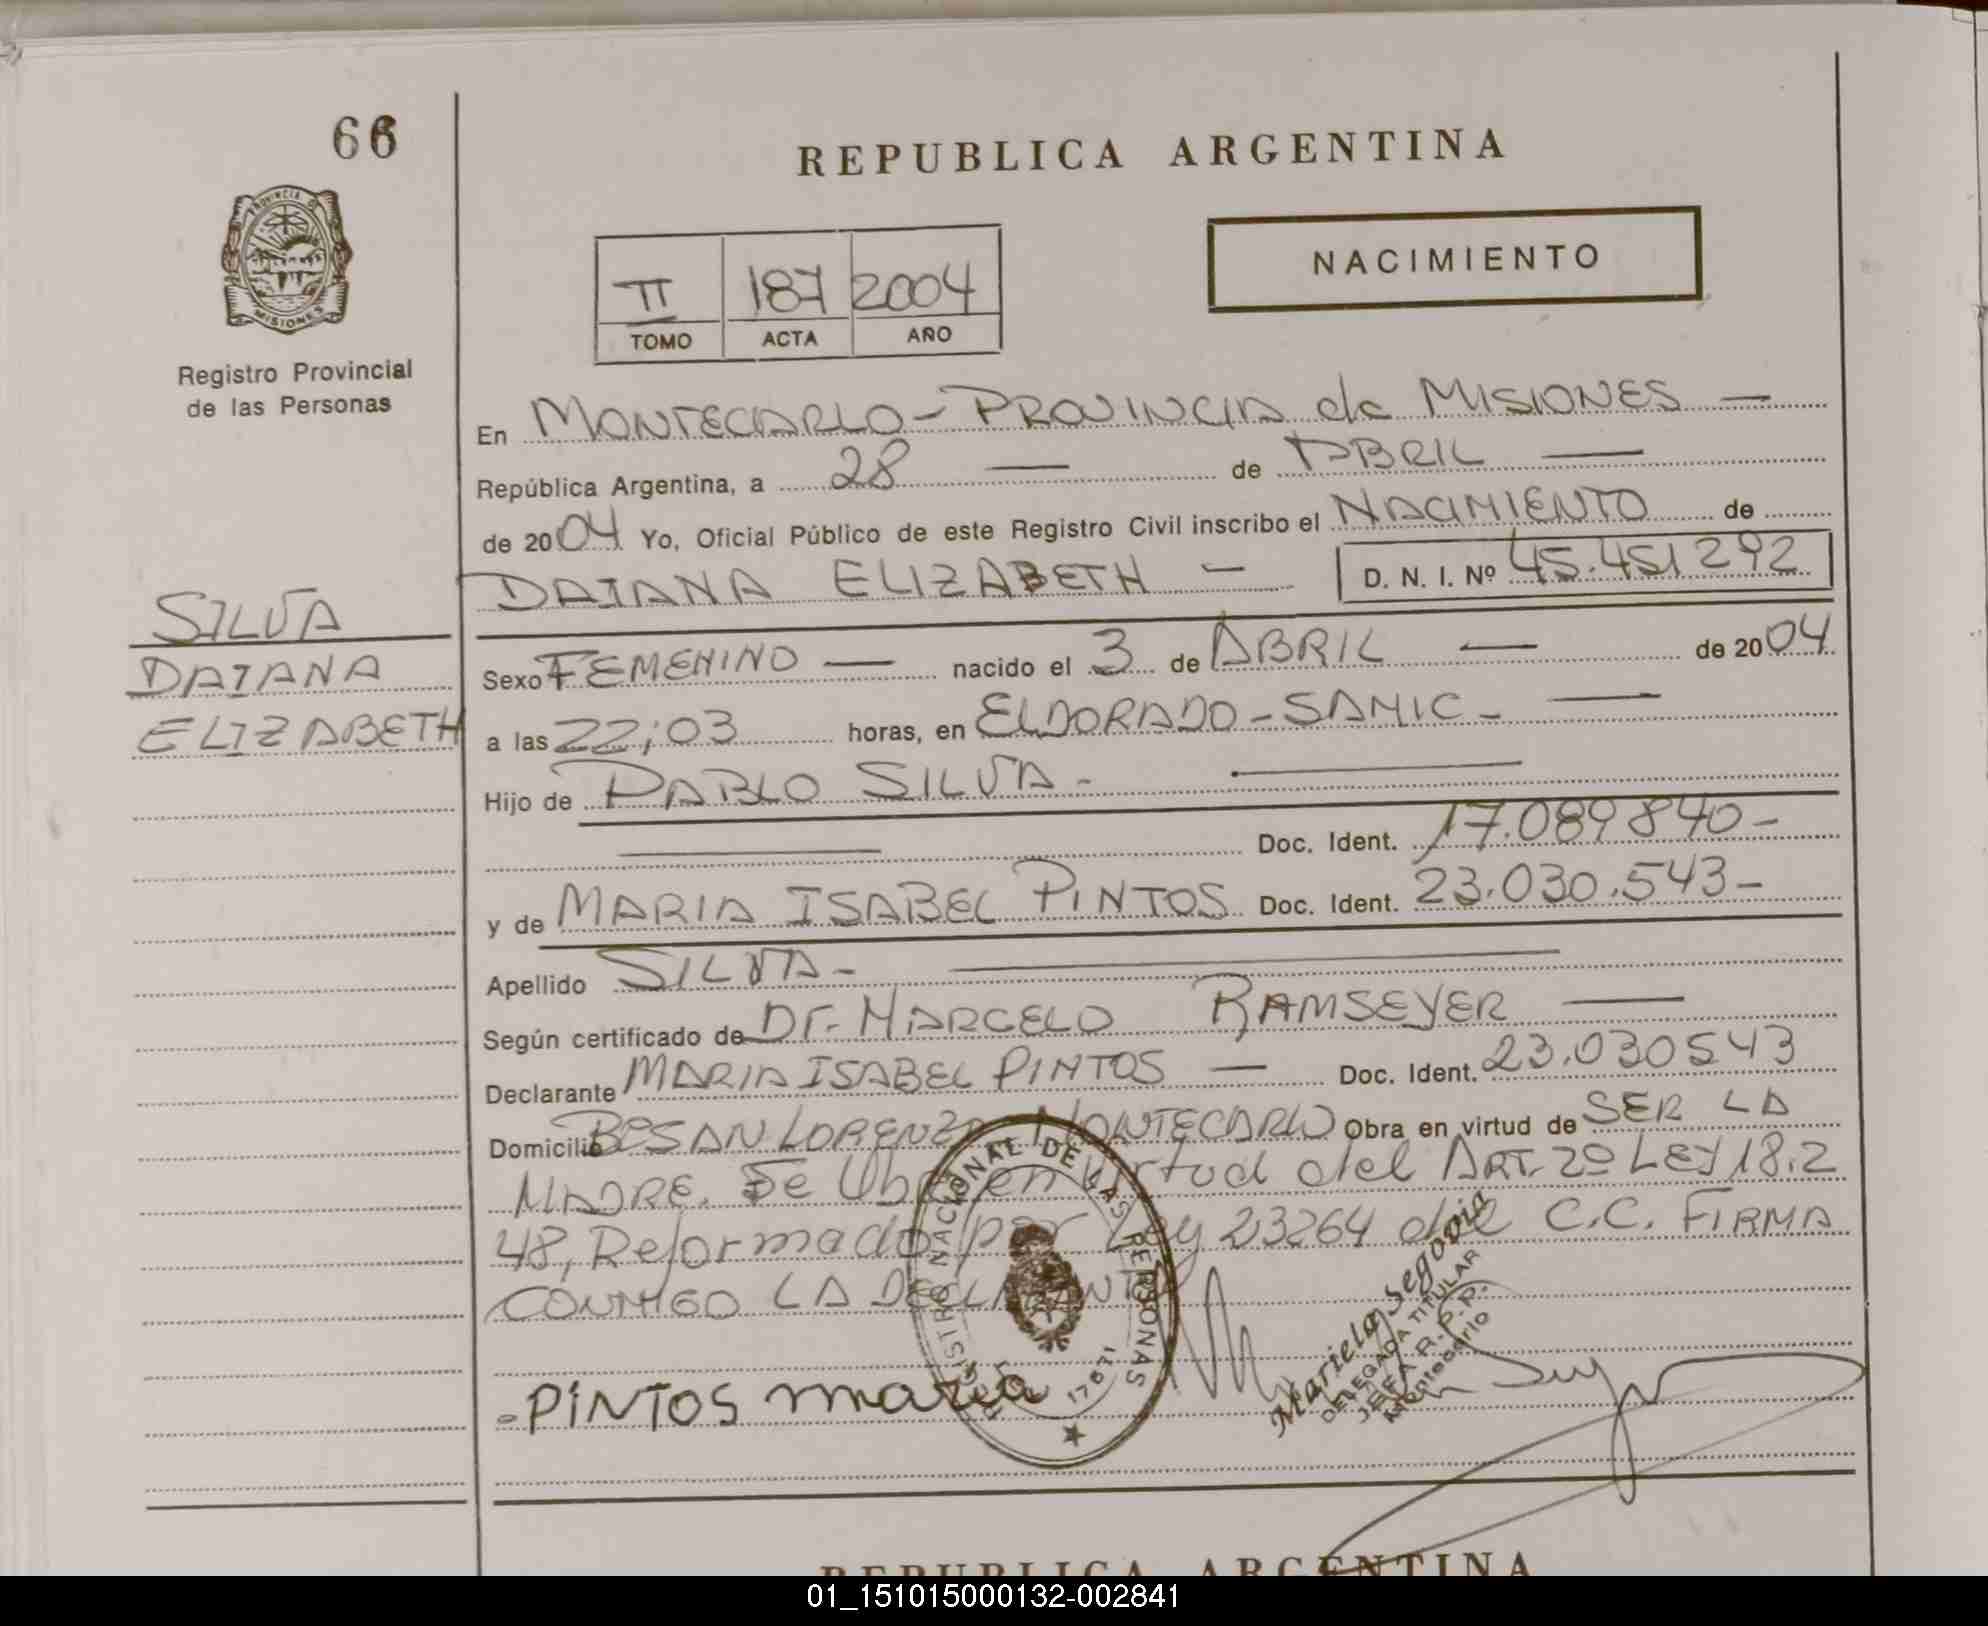 66
REPUBLICA ARGENTINA
PROVINCIA DE
MISIONES
Registro Provincial
de las Personas
II 187 2004
TOMO ACTA AÑO
NACIMIENTO
En MONTECARLO - PROVINCIA de MISIONES —
República Argentina, a 28 — de ABRIL —
de 2004 Yo, Oficial Público de este Registro Civil inscribo el NACIMIENTO de
DAIANA ELIZABETH — D. N. I. Nº 45.451292
SILVA
DAIANA
ELIZABETH
Sexo FEMENINO — nacido el 3 de ABRIL — de 2004
a las 22;03 horas, en ELDORADO - SAMIC - —
Hijo de PABLO SILVA - —
— Doc. Ident. 17.089840 -
y de MARIA ISABEL PINTOS Doc. Ident. 23.030.543 -
Apellido SILVA - —
Según certificado de Dr. MARCELO RAMSEYER —
Declarante MARIA ISABEL PINTOS — Doc. Ident. 23.030543
Domicilio Bº SAN LORENZO MONTECARLO Obra en virtud de SER LA
MADRE. Se Obra en virtud del ART. 2º LEY 18.2
48, Reformado por Ley 23264 del C.C. FIRMA
CONMIGO LA DECLARANTE
- PINTOS maria
REGISTRO NACIONAL DE LAS PERSONAS
17671
Mariela Segovia
DELEGADA TITULAR
JEFA R.P.P.
Montecarlo
REPUBLICA ARGENTINA
01_151015000132-002841